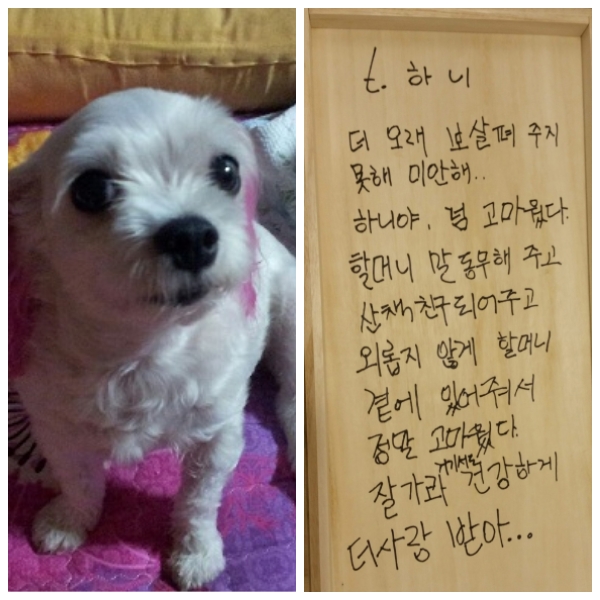 t. 하니
더 오래 보살펴 주지
못해 미안해..
하니야, 넘 고마웠다.
할머니 말동무해 주고
산책친구되어주고
외롭지 않게 할머니
곁에 있어줘서
정말 고마웠다.
잘가라 거기선도 건강하게
더사랑 받아...